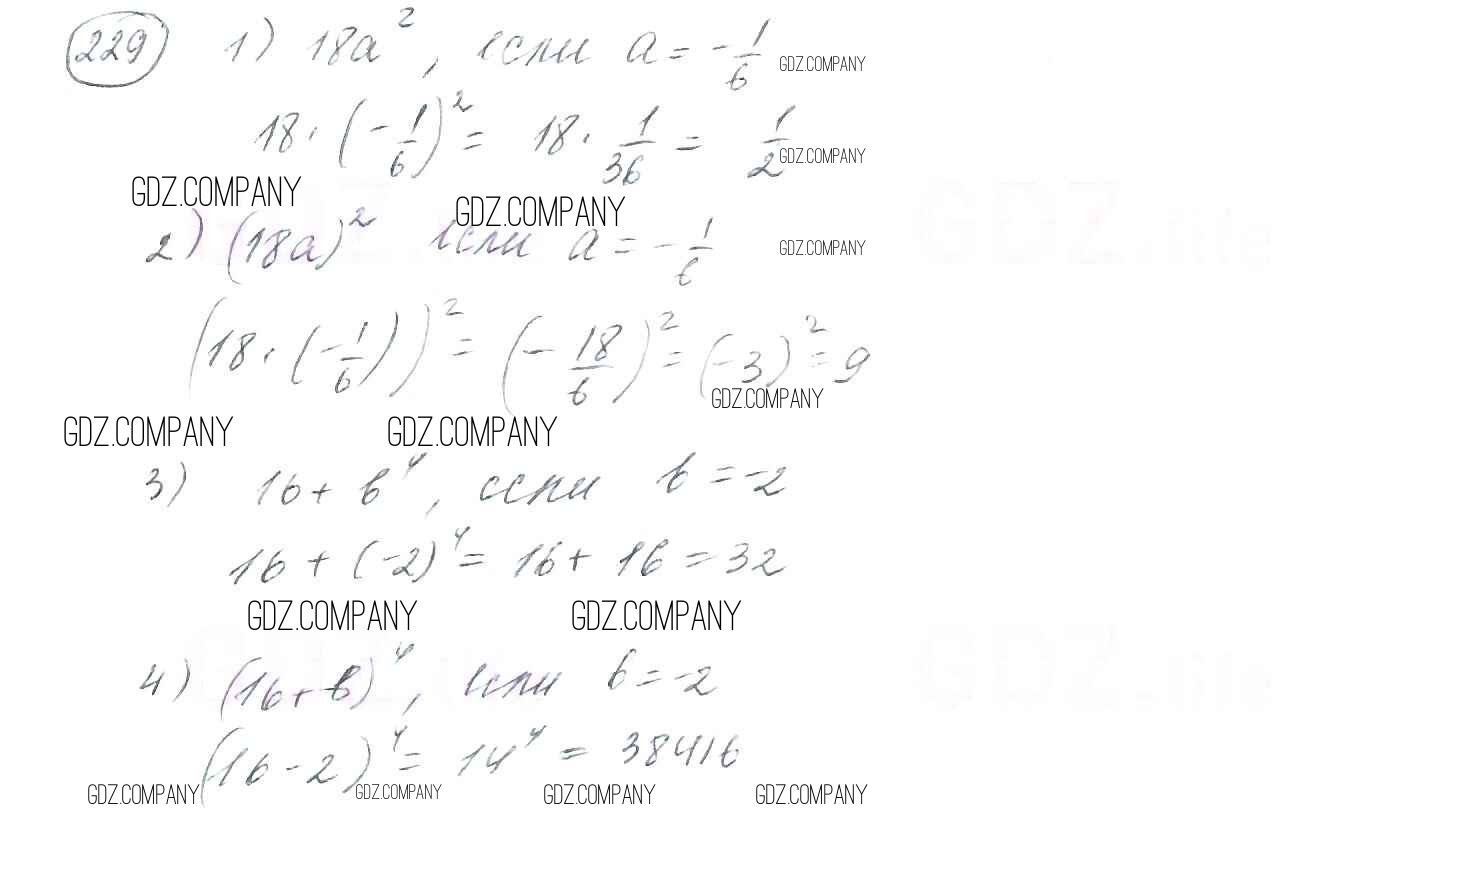 229 1) 18a², если a = -1/6 GDZ.COMPANY
18 · (-1/6)² = 18 · 1/36 = 1/2 GDZ.COMPANY
GDZ.COMPANY GDZ.COMPANY GDZ.life
2) (18a)² если a = -1/6 GDZ.COMPANY
(18 · (-1/6))² = (-18/6)² = (-3)² = 9
GDZ.COMPANY
GDZ.COMPANY GDZ.COMPANY
3) 16 + b⁴, если b = -2
16 + (-2)⁴ = 16 + 16 = 32
GDZ.COMPANY GDZ.COMPANY
GDZ.life
4) (16 + b)⁴, если b = -2
(16 - 2)⁴ = 14⁴ = 38416
GDZ.COMPANY GDZ.COMPANY GDZ.COMPANY GDZ.COMPANY